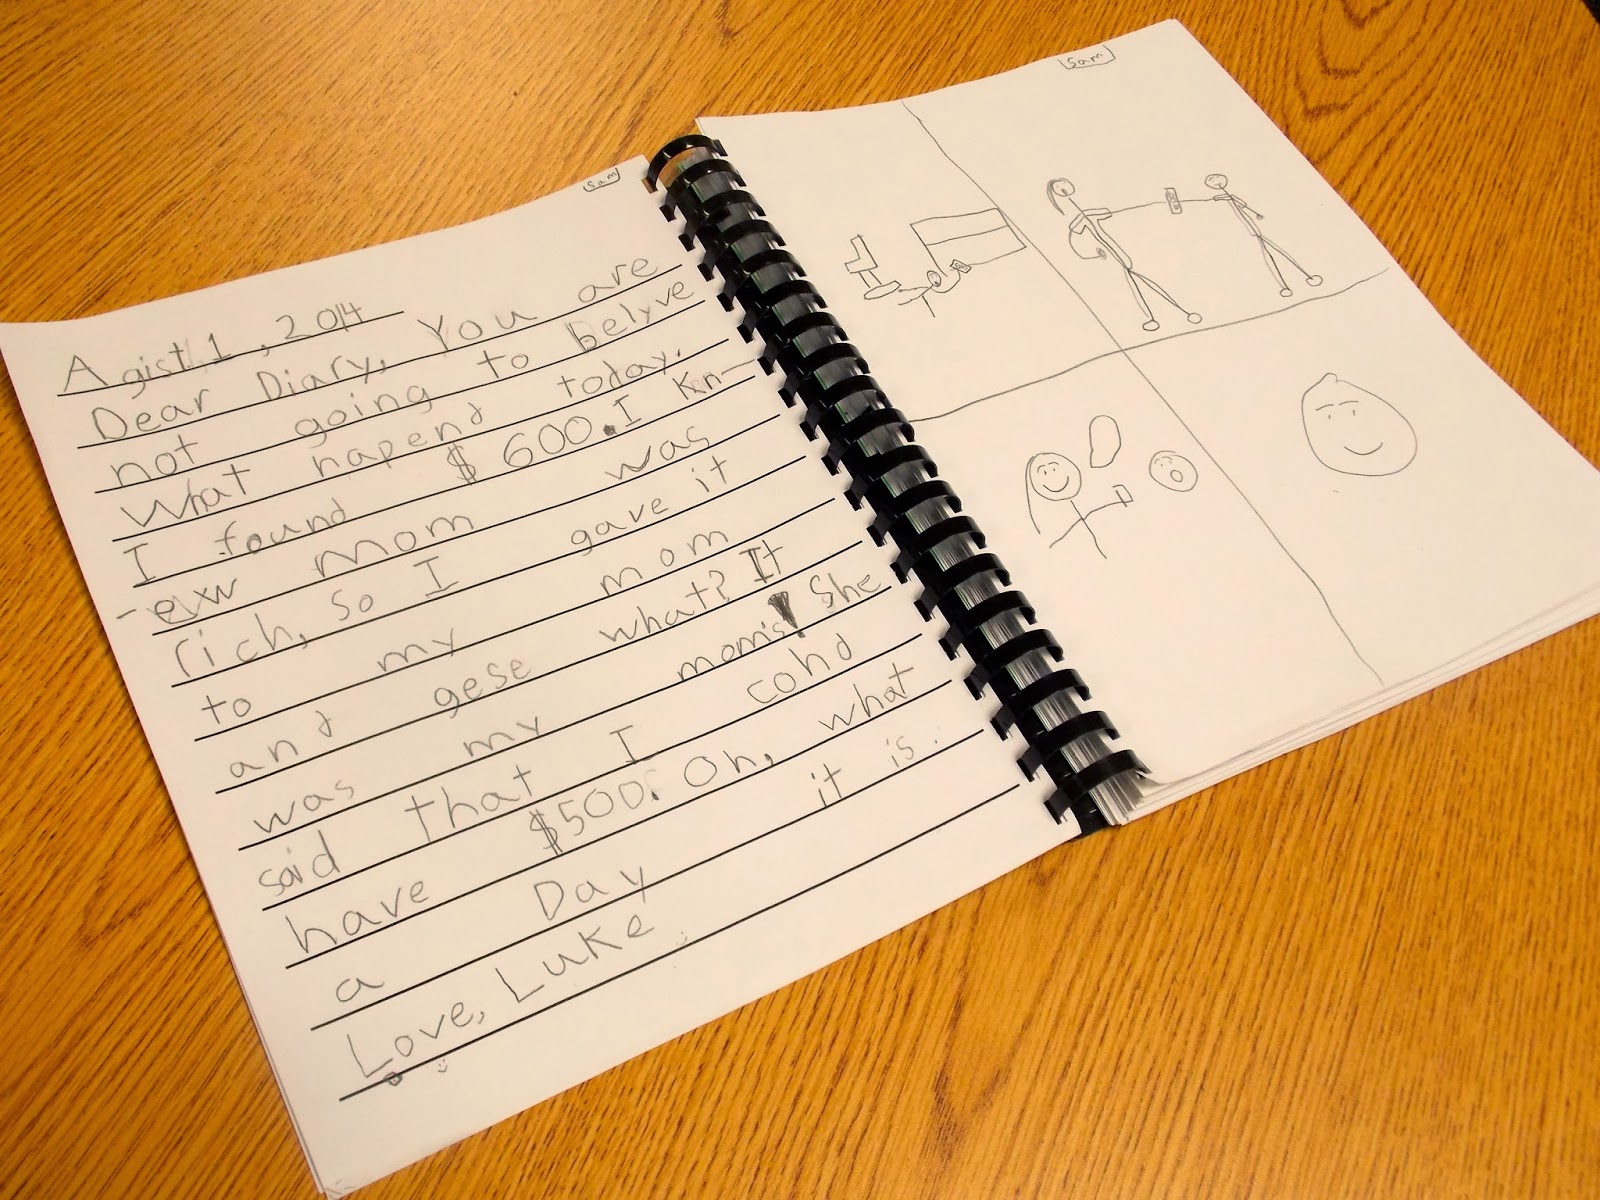 Sam
Agist 1, 2014
Dear Diary, You are
not going to belyve
What hapend today.
I found $600. I Kn-
-ew mom was
rich, so I gave it
to my mom
and gese what? It
was my mom's! She
said that I cohd
have $500. Oh, what
a Day it is.
Love, Luke
Sam